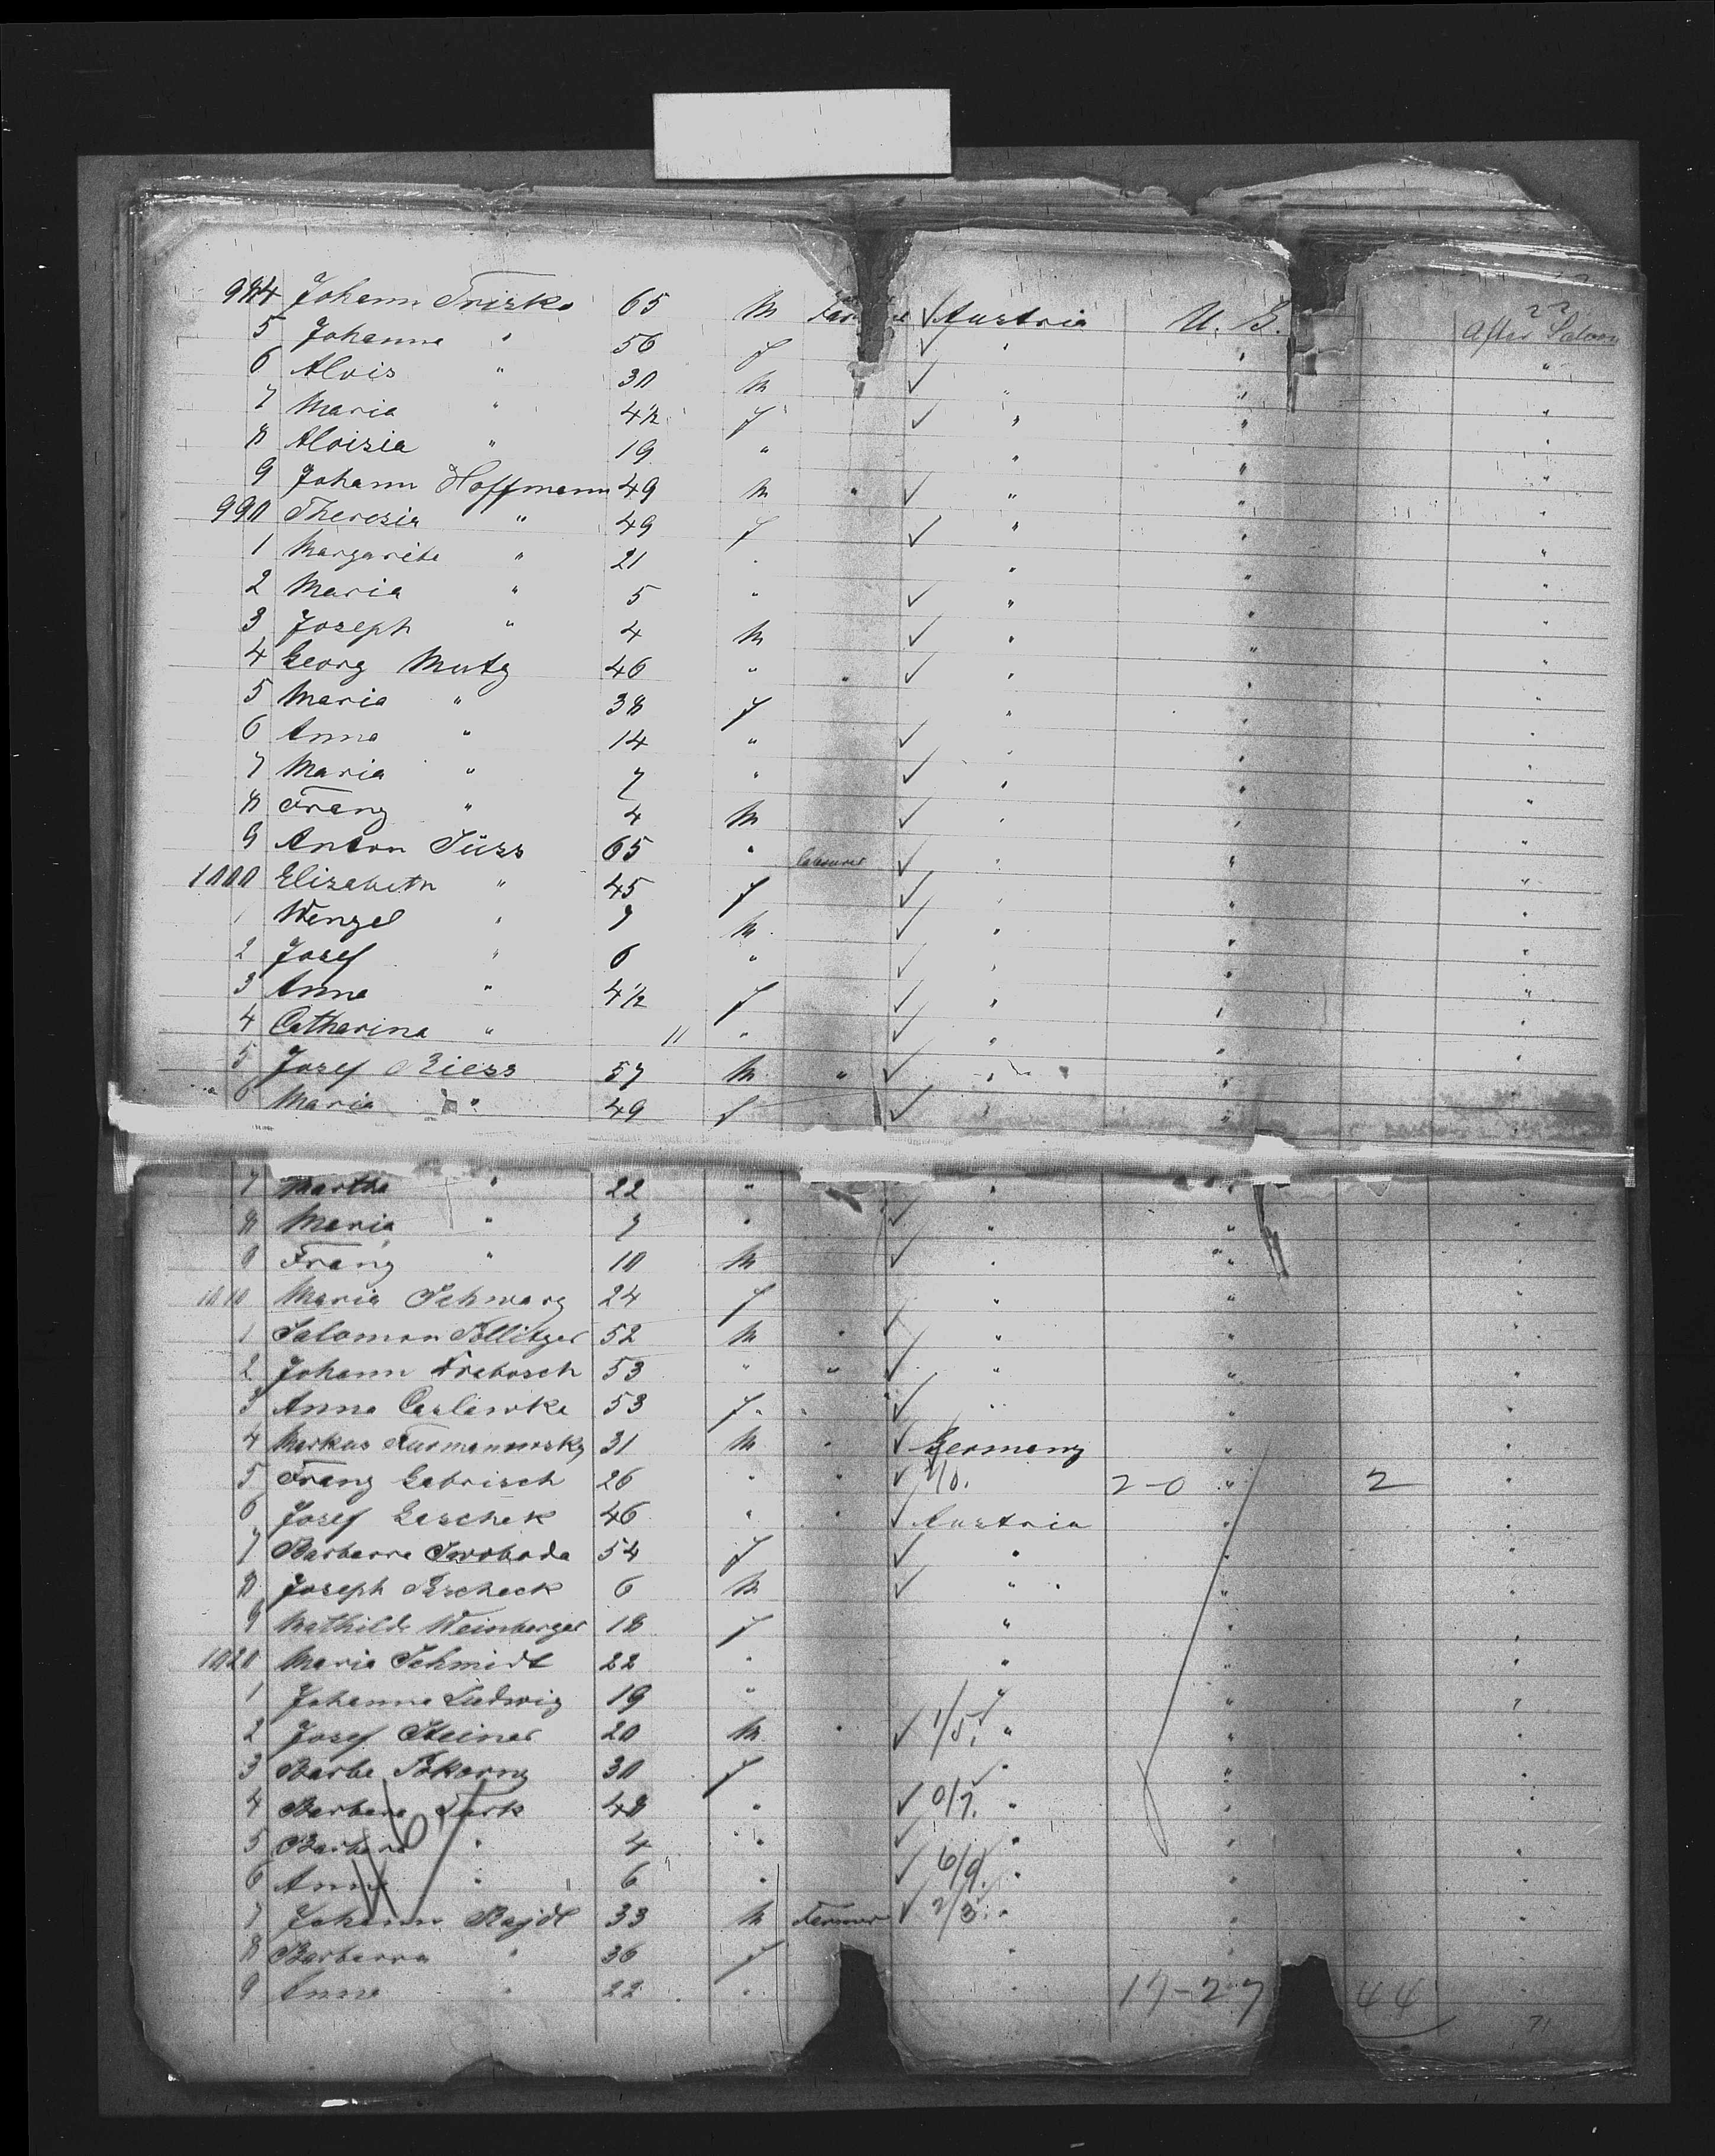 22
984 Johann Trisko 65 M Austria U. S. After Saloon
5 Johanna " 56 f " " "
6 Alois " 30 M " " "
7 Maria " 4½ f " " "
8 Aloisia " 19 " " " "
9 Johann Hoffmann 49 M " " " "
990 Theresia " 49 f " " "
1 Margarite " 21 " " " "
2 Maria " 5 " " " "
3 Joseph " 4 M " " "
4 Georg Mutz 46 " " " " "
5 Maria " 38 f " " "
6 Anna " 14 " " " "
7 Maria " 7 " " " "
8 Franz " 4 M " " "
9 Anton Süss 65 " labourer " " "
1000 Elizabeth " 45 f " " "
1 Wenzel " 9 M " " "
2 Josef " 6 " " " "
3 Anna " 4½ f " " "
4 Catharina " 11 " " " "
5 Josef Riess 57 M " " " "
6 Maria " 49 f " "
7 Martha " 22 " " " "
8 Maria " 7 " " " "
9 Franz " 10 M " " "
1010 Maria Schwarz 24 f " " "
1 Salomon Pollitzer 52 M " " " "
2 Johann Trabosch 53 " " " " "
3 Anna 53 f " " " "
4 Markus Furmanowsky 31 M " Germany " "
5 Franz Gabrisch 26 " " 1/0. 2-0 " 2 "
6 Josef Geschek 46 " " Austria " "
7 Barbara Swoboda 54 f " " "
8 Joseph 6 M " " "
9 Mathilde Weinberger 18 f " " "
1020 Maria Schmidt 22 " " " "
1 Johanna Ludwig 19 " " " "
2 Josef Steiner 20 M " 1/5. " " "
3 Barba Pokorny 30 f " " "
4 Barbara Turk 48 " 0/7. " " "
5 Barbara " 4 " " " "
6 Anna " 6 " 6/9. " " "
7 Johann Bajdl 33 M Farmer 2/3. " " "
8 Barbara " 36 f " " "
9 Anna " 22 " " 17-27 44 "
71